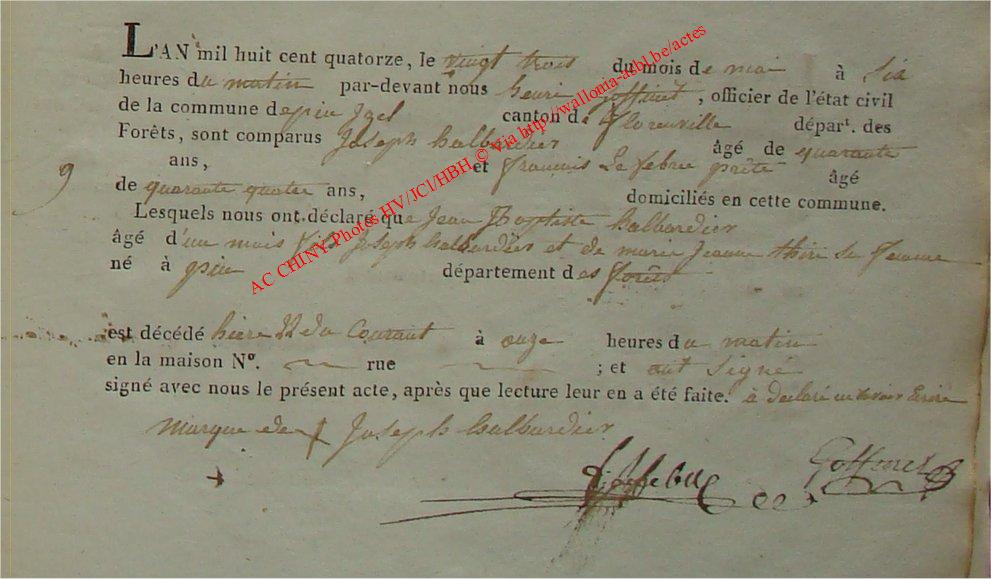 L'AN mil huit cent quatorze, le vingt trois du mois de mai à six
heures du matin par-devant nous henri Goffinet, officier de l'état civil
de la commune de pin Izel canton de florenville dépar.t des
Forêts, sont comparus Joseph halbardier âgé de quarante
9
ans, et francois Le febve prête âgé
de quarante quater ans, domiciliés en cette commune.
Lesquels nous ont déclaré que Jean Baptiste halbardier
âgé d'un mois fils Joseph halbardier et de marie Jeanne thiri sa femme
né à pin département des forêts
est décédé hière 22 du Courant à onze heures du matin
en la maison N°. rue ; et ont signé
signé avec nous le présent acte, après que lecture leur en a été faite. à declaré
marque de Joseph halbardier
Lefebve Goffinet
AC CHINY Photos HV/JCl/HBH © via http://wallonia-asbl.be/actes